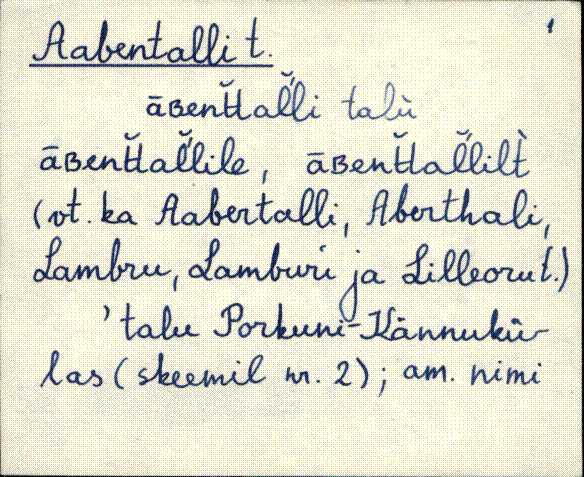 Aabentalli t.
āʙent̆t̆al̆ĺi talù
āʙent̆t̆al̆ĺile, āʙent̆t̆al̆ĺilt̀
(vt. ka Aabertalli, Aberthali,
Lambru, Lamburi ja Lilleoru t.)
'talu Porkuni-Kännukü-
las (skeemil nr. 2); am. nimi